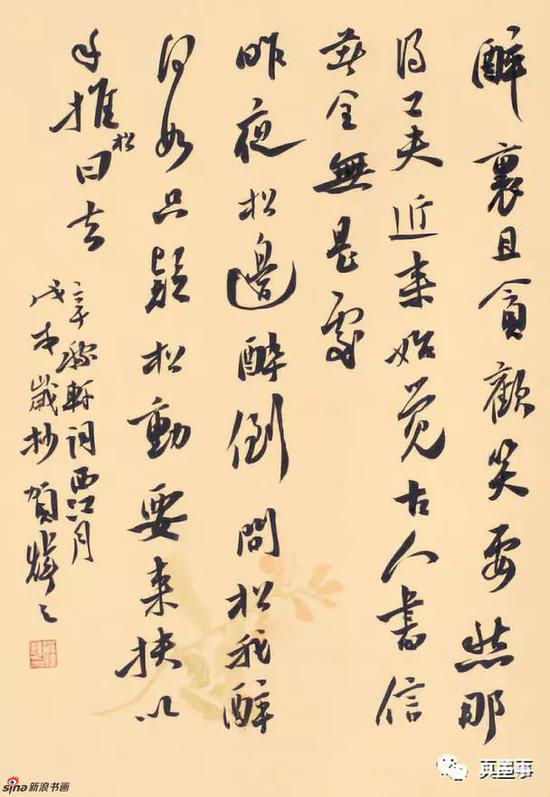 醉裏且貪歡笑要愁那
得工夫近来始觉古人書信
著全無是處
昨夜松邊醉倒問松我醉
何如只疑松動要来扶以
手推松曰去
辛稼軒词西江月
歲抄賀
sina新浪书画